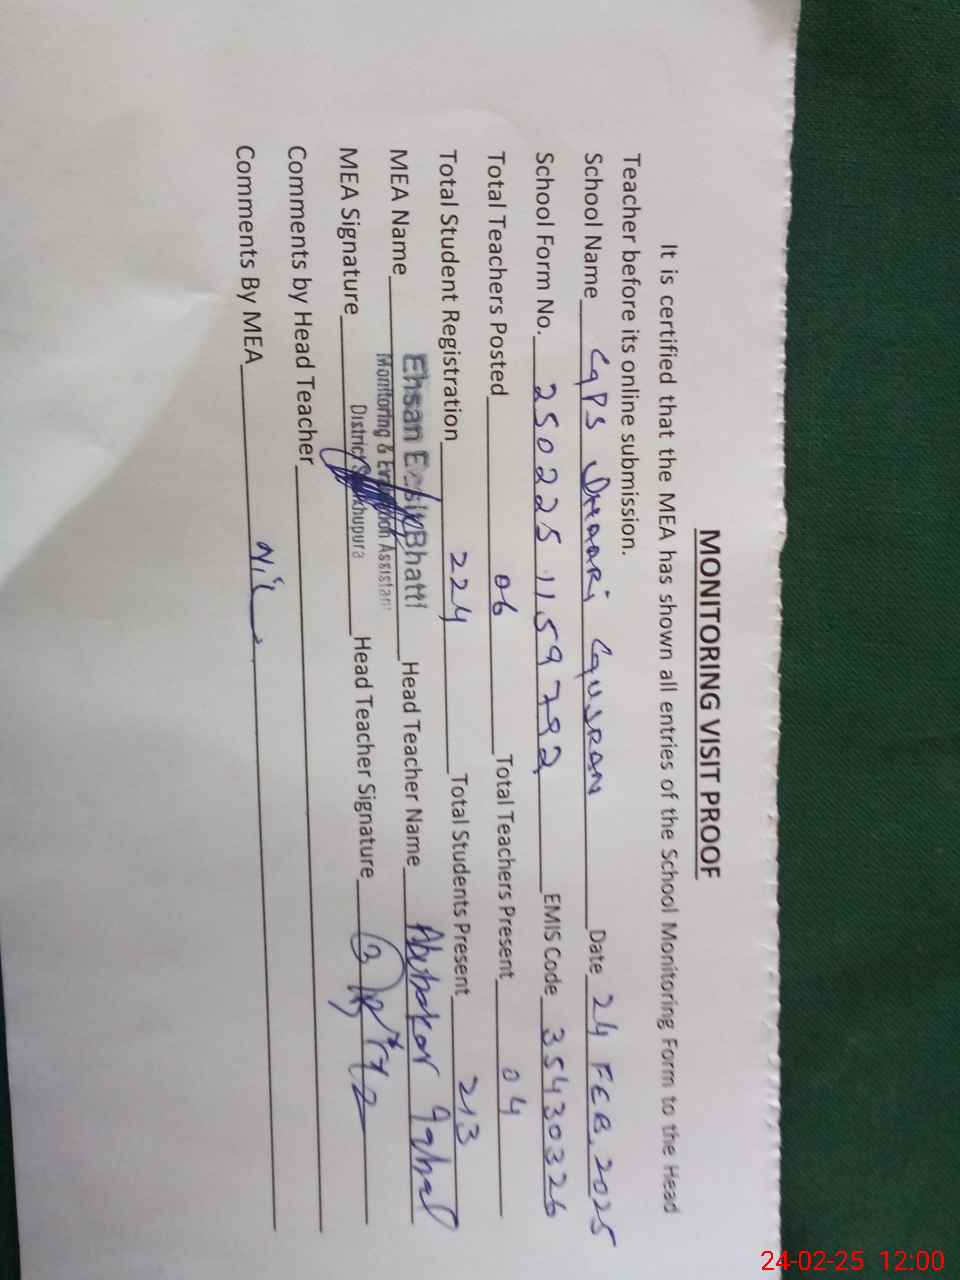 MONITORING VISIT PROOF
It is certified that the MEA has shown all entries of the School Monitoring Form to the Head
Teacher before its online submission.
School Name GPS Dhaari Gujran Date 24 FEB. 2025
School Form No. 250225 1159792 EMIS Code 35430326
Total Teachers Posted 06 Total Teachers Present 04
Total Student Registration 224 Total Students Present 213
MEA Name Ehsan Bhatti Head Teacher Name Abubakar Iqbal
Monitoring & Evaluation Assistant
MEA Signature District Sheikhupura Head Teacher Signature
Comments by Head Teacher
Comments By MEA Nil
24-02-25 12:00